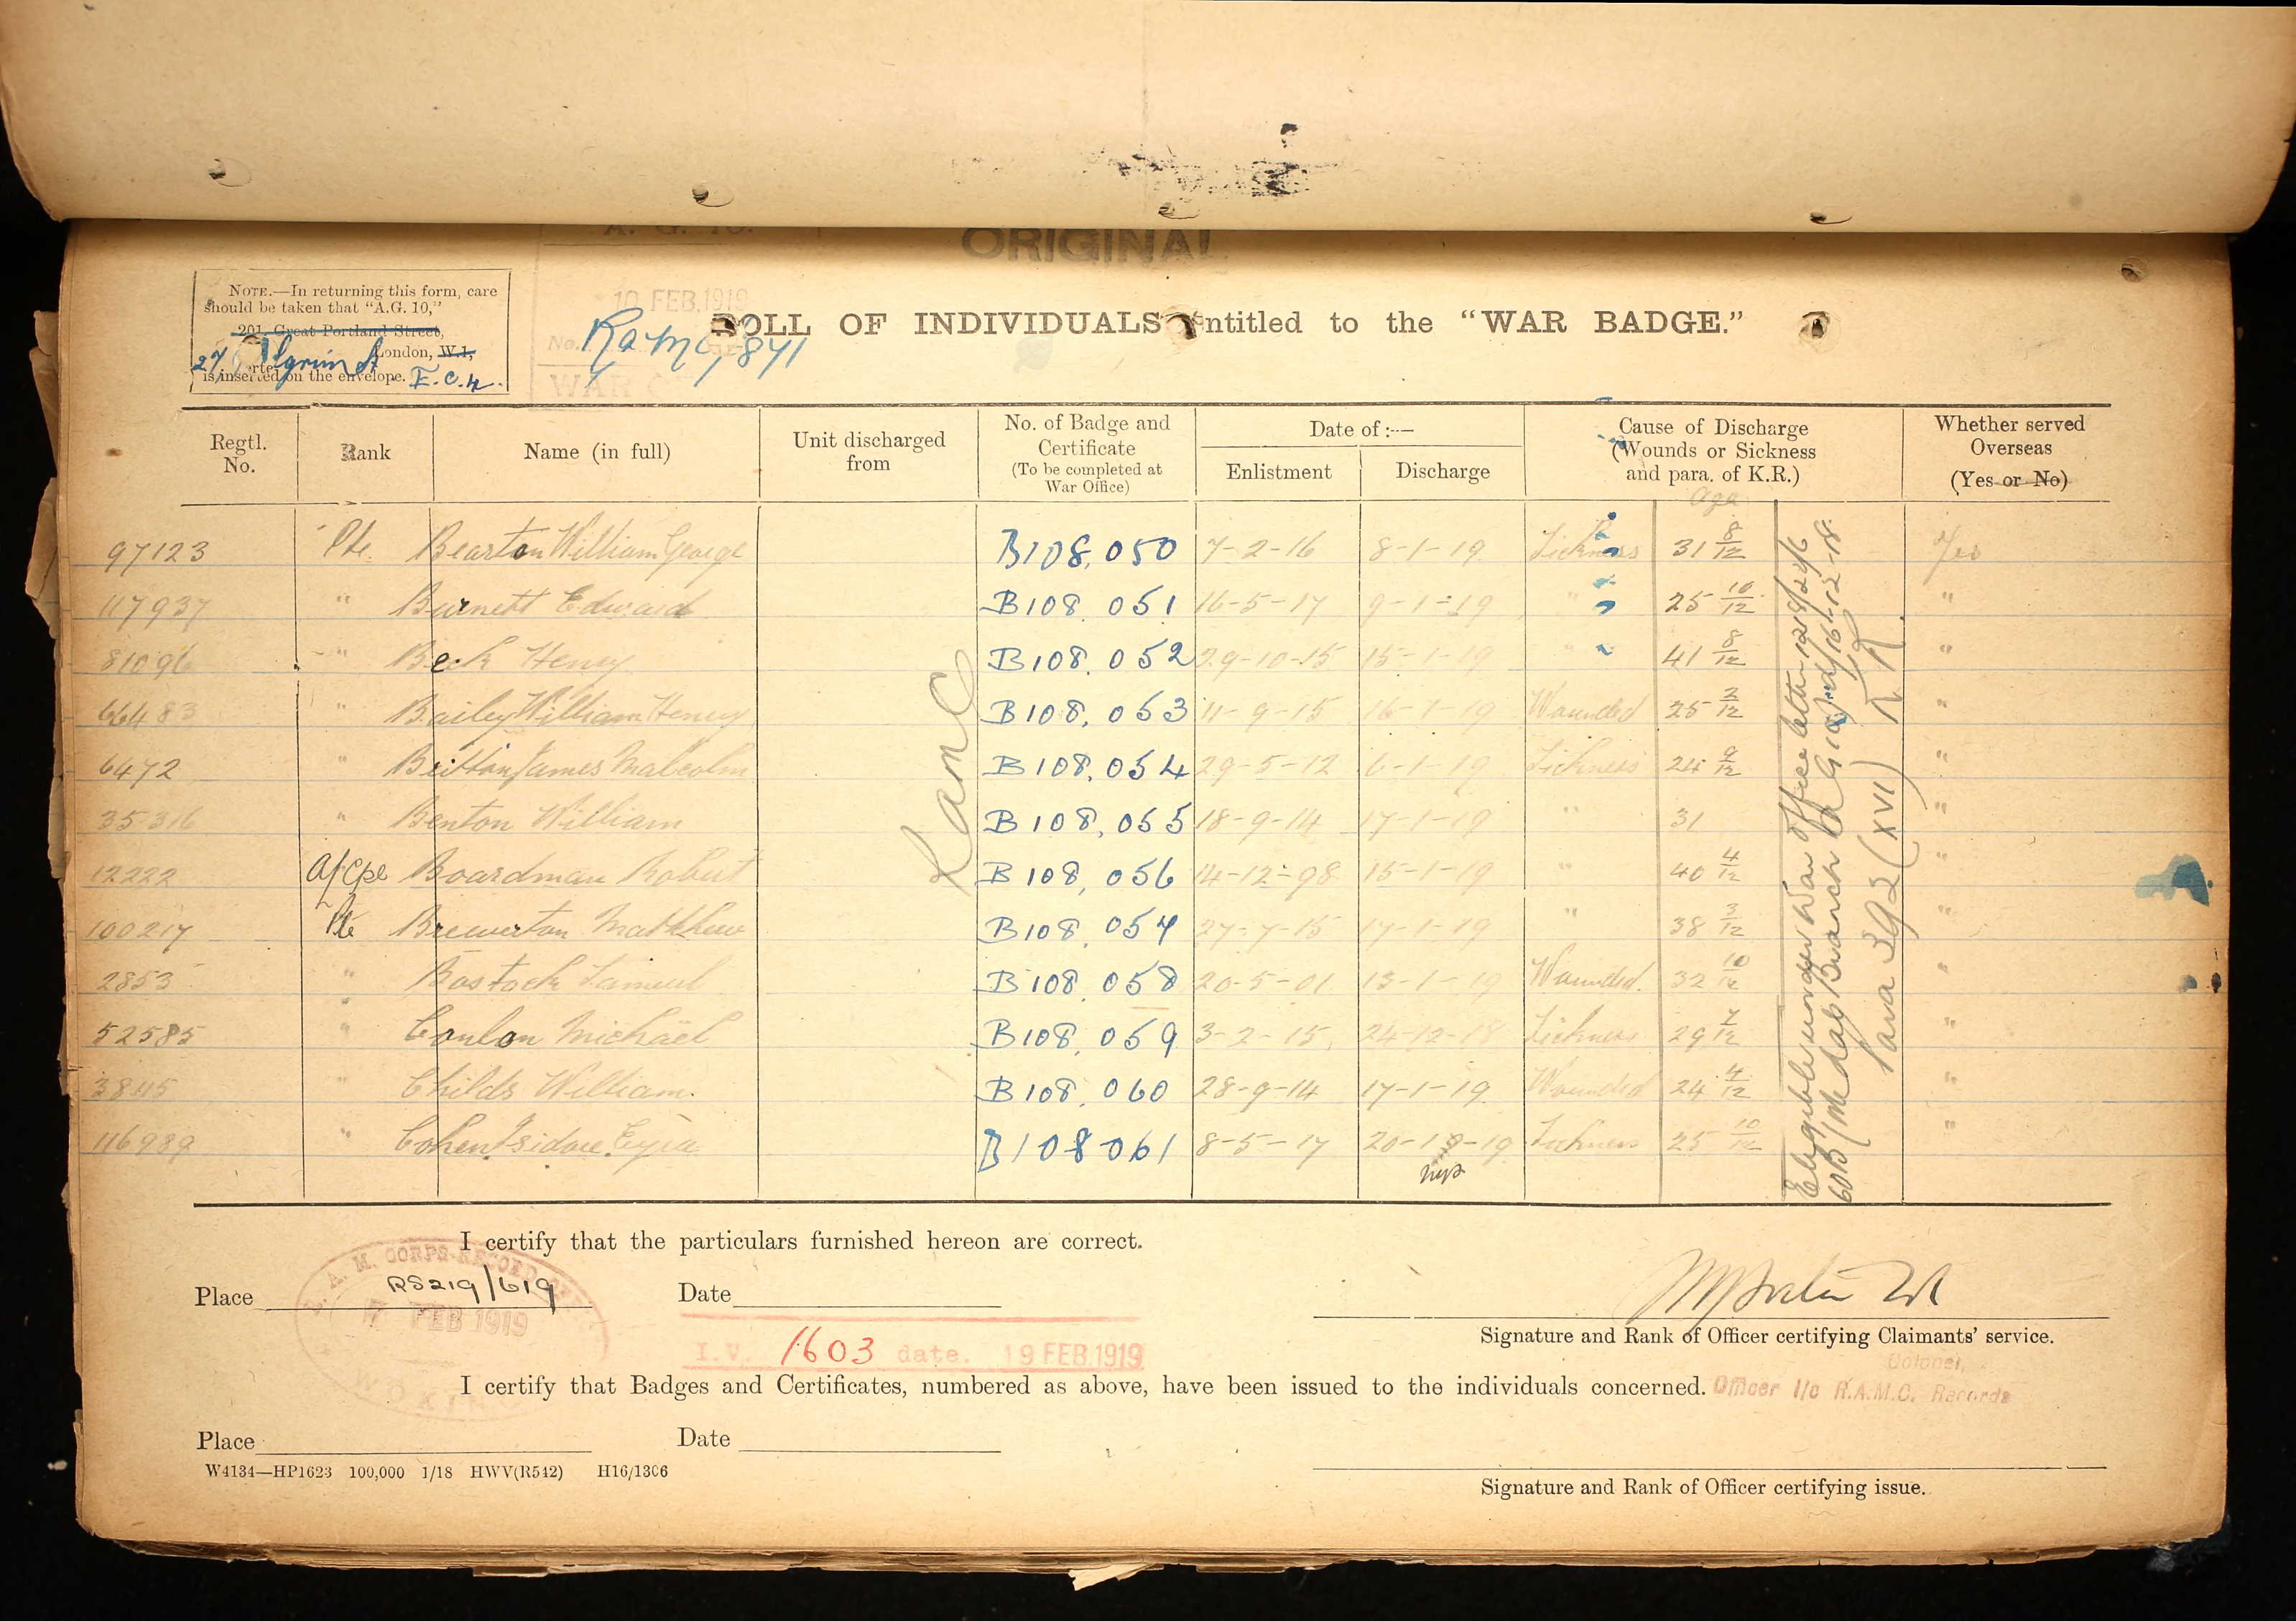 A. G. 10.
ORIGINAL
NOTE.—In returning this form, care
should be taken that "A.G. 10,"
201, Great Portland Street,
London, W.1,
27 Pilgrim St
is inserted on the envelope. E.C.4.
10 FEB.1919
No.
RAMC/841
WAR
ROLL OF INDIVIDUALS entitled to the "WAR BADGE."
Regtl. No. Rank Name (in full) Unit discharged from No. of Badge and Certificate (To be completed at War Office) Date of :— Enlistment Discharge Cause of Discharge (Wounds or Sickness and para. of K.R.) Whether served Overseas (Yes or No)
Age
97123 Pte. Bearton William George B108,050 7-2-16 8-1-19 Sickness 31 8/12 Yes
117937 " Burnett Edward B108,051 16-5-17 9-1-19 " 25 10/12 "
81096 " Beck Henry B108,052 29-10-15 15-1-19 " 41 8/12 "
66483 " Bailey William Henry B108,053 11-9-15 16-1-19 Wounded 25 2/12 "
6472 " Britton James Malcolm B108,054 29-5-12 6-1-19 Sickness 24 9/12 "
35316 " Benton William B108,055 18-9-14 17-1-19 " 31 "
12222 A/Cpl Boardman Robert B108,056 14-12-98 15-1-19 " 40 4/12 "
100217 Pte Brewerton Matthew B108,057 27-7-15 17-1-19 " 38 3/12 "
2853 " Bostock Samuel B108,058 20-5-01 13-1-19 Wounded. 32 10/12 "
52585 " Conlon Michael B108,059 3-2-15 24-12-18 Sickness 29 7/12 "
3845 " Childs William. B108,060 28-9-14 17-1-19 Wounded 24 4/12 "
116989 " Cohen Isidore Ezra B108061 8-5-17 20-1-19 Sickness 25 10/12 "
RAMC
Eligible under War Office letter
Para 392 (XVI)
I certify that the particulars furnished hereon are correct.
R.A.M. CORPS RECORD OFFICE
17 FEB 1919
WOKING
Place RS219/619 Date
I.V. 1603 date. 19 FEB.1919
Signature and Rank of Officer certifying Claimants' service.
Colonel,
Officer I/c R.A.M.C. Records
I certify that Badges and Certificates, numbered as above, have been issued to the individuals concerned.
Place Date
W4134—HP1623 100,000 1/18 HWV(R542) H16/1306
Signature and Rank of Officer certifying issue.